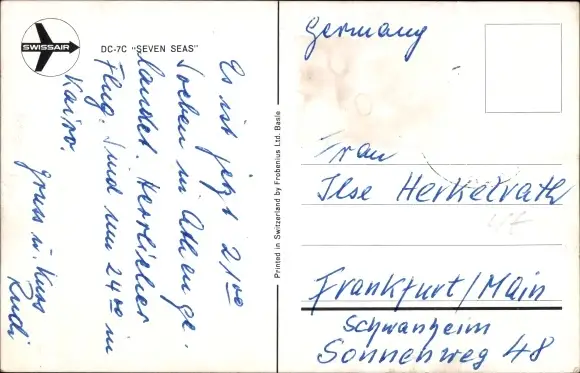 SWISSAIR
DC-7C "SEVEN SEAS"
Es ist jetzt 21⁰⁰
Soeben in Athen ge-
landet. Herrlicher
Flug. Sind um 24⁰⁰ in
Kairo.
Gruss u. Kuss
Rudi
Printed in Switzerland by Frobenius Ltd. Basle
Germany
Frau
Ilse Herkelrath
Frankfurt/Main
Schwanheim
Sonnenweg 48